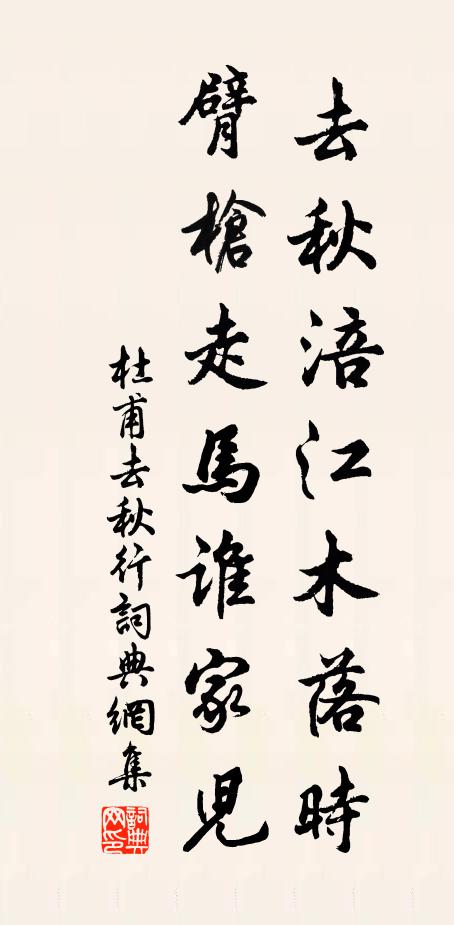 去秋涪江木落時
臂槍走馬誰家兒
杜甫去秋行詞典網集
詞典網印